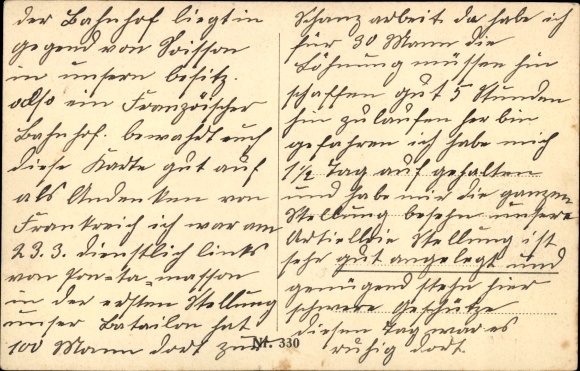 der Bahnhof liegt in
gegend von Soisson
in unsern besitz.
also ein Französischer
Bahnhof. bewahrt euch
diese Karte gut auf
als Andenken von
Frankreich ich war am
23.3. dienstlich links
von Pon-ta-masson
in der ersten Stellung
unser Batailon hat
100 Mann dort zur
Schanz arbeit da habe ich
für 30 Mann die
Löhnung müssen hin
schaffen gut 5 Stunden
hin zu laufen her bin
gefahren ich habe mich
1½ Tag auf gehalten
und habe mir die ganzen
Stellung besehn unsere
Artielldie Stellung ist
sehr gut angelegt und
genügend stehn hier
schwere Geschütze
diesen Tag war es
ruhig dort.
Nr. 330